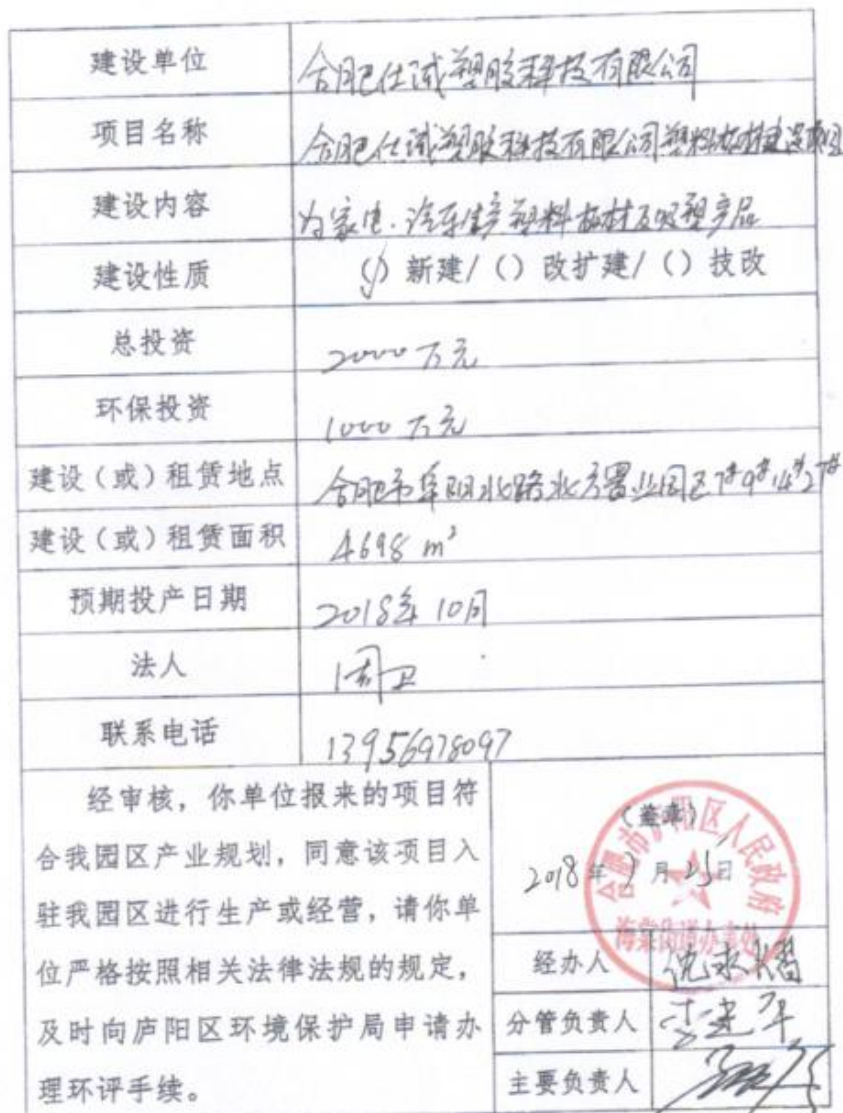 建设单位 合肥仕诚塑胶科技有限公司
项目名称 合肥仕诚塑胶科技有限公司塑料板材建设项目
建设内容 为家电、汽车生产塑料板材及吸塑产品
建设性质 (√) 新建/ () 改扩建/ () 技改
总投资 2000万元
环保投资 1000万元
建设(或)租赁地点 合肥市阜阳北路北方置业园区7#9#14#27#
建设(或)租赁面积 4698 m²
预期投产日期 2018年10月
法人 周卫
联系电话 13956978097
经审核,你单位报来的项目符
合我园区产业规划,同意该项目入
驻我园区进行生产或经营,请你单
位严格按照相关法律法规的规定,
及时向庐阳区环境保护局申请办
理环评手续。
(盖章)
合肥市庐阳区人民政府
海棠街道办事处
2018年 月25日
经办人
分管负责人 李建平
主要负责人